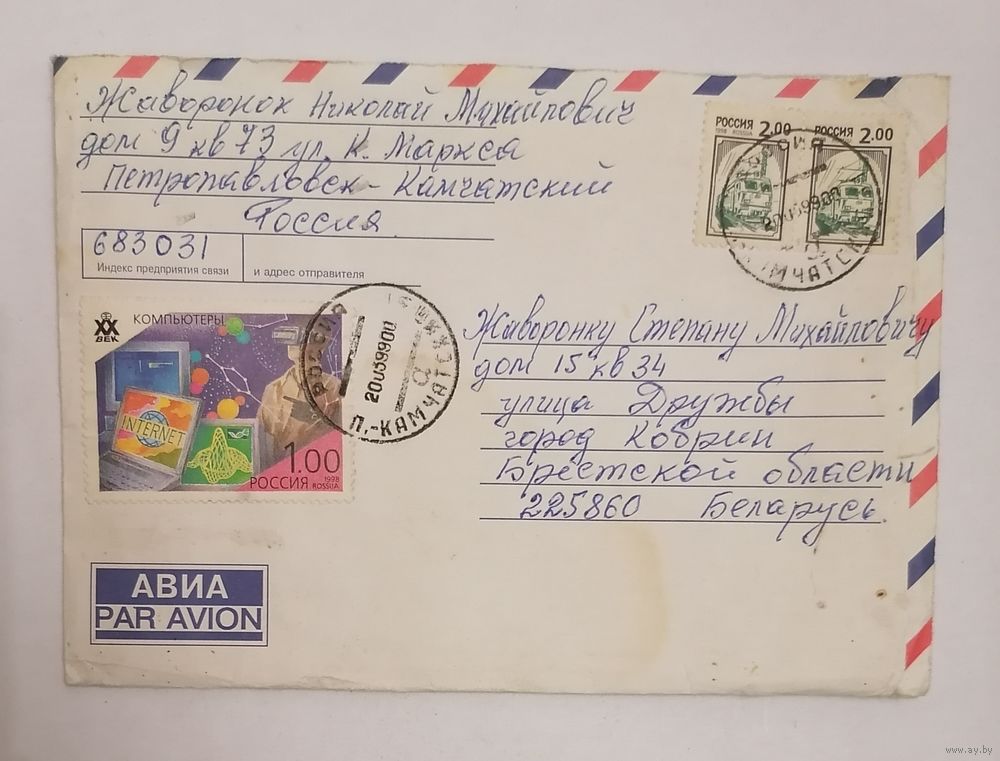 Жаворонок Николай Михайлович
дом 9 кв 73 ул. К. Маркса
Петропавловск-Камчатский
Россия
683031
Индекс предприятия связи
и адрес отправителя
РОССИЯ 2.00
1998 ROSSIJA
РОССИЯ 2.00
XX ВЕК
КОМПЬЮТЕРЫ
INTERNET
1.00
РОССИЯ 1998 ROSSIJA
РОССИЯ
П.-КАМЧАТСКИЙ
Жаворонку Степану Михайловичу
дом 15 кв 34
улица Дружбы
город Кобрин
Брестской области
225860 Беларусь.
АВИА
PAR AVION
www.ay.by